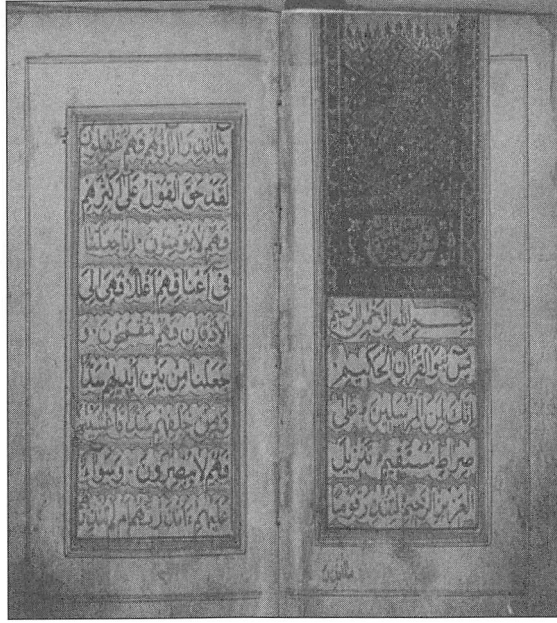 بِسْمِ اللهِ الرَّحْمٰنِ الرَّحِيمِ
يٰسٓ وَالْقُرْاٰنِ الْحَكِيمِ
اِنَّكَ لَمِنَ الْمُرْسَلِينَ عَلٰى
صِرَاطٍ مُسْتَقِيمٍ تَنْزِيلَ
الْعَزِيزِ الرَّحِيمِ لِتُنْذِرَ قَوْمًا
مَا اُنْذِرَ
مَا اُنْذِرَ اٰبَاؤُهُمْ فَهُمْ غٰفِلُونَ
لَقَدْ حَقَّ الْقَوْلُ عَلٰى اَكْثَرِهِمْ
فَهُمْ لَا يُؤْمِنُونَ اِنَّا جَعَلْنَا
فِى اَعْنَاقِهِمْ اَغْلَالًا فَهِىَ اِلَى
الْاَذْقَانِ فَهُمْ مُقْمَحُونَ وَ
جَعَلْنَا مِنْ بَيْنِ اَيْدِيهِمْ سَدًّا
وَمِنْ خَلْفِهِمْ سَدًّا فَاَغْشَيْنٰهُمْ
فَهُمْ لَا يُبْصِرُونَ وَسَوَآءٌ
عَلَيْهِمْ ءَاَنْذَرْتَهُمْ اَمْ لَمْ تُنْذِرْ